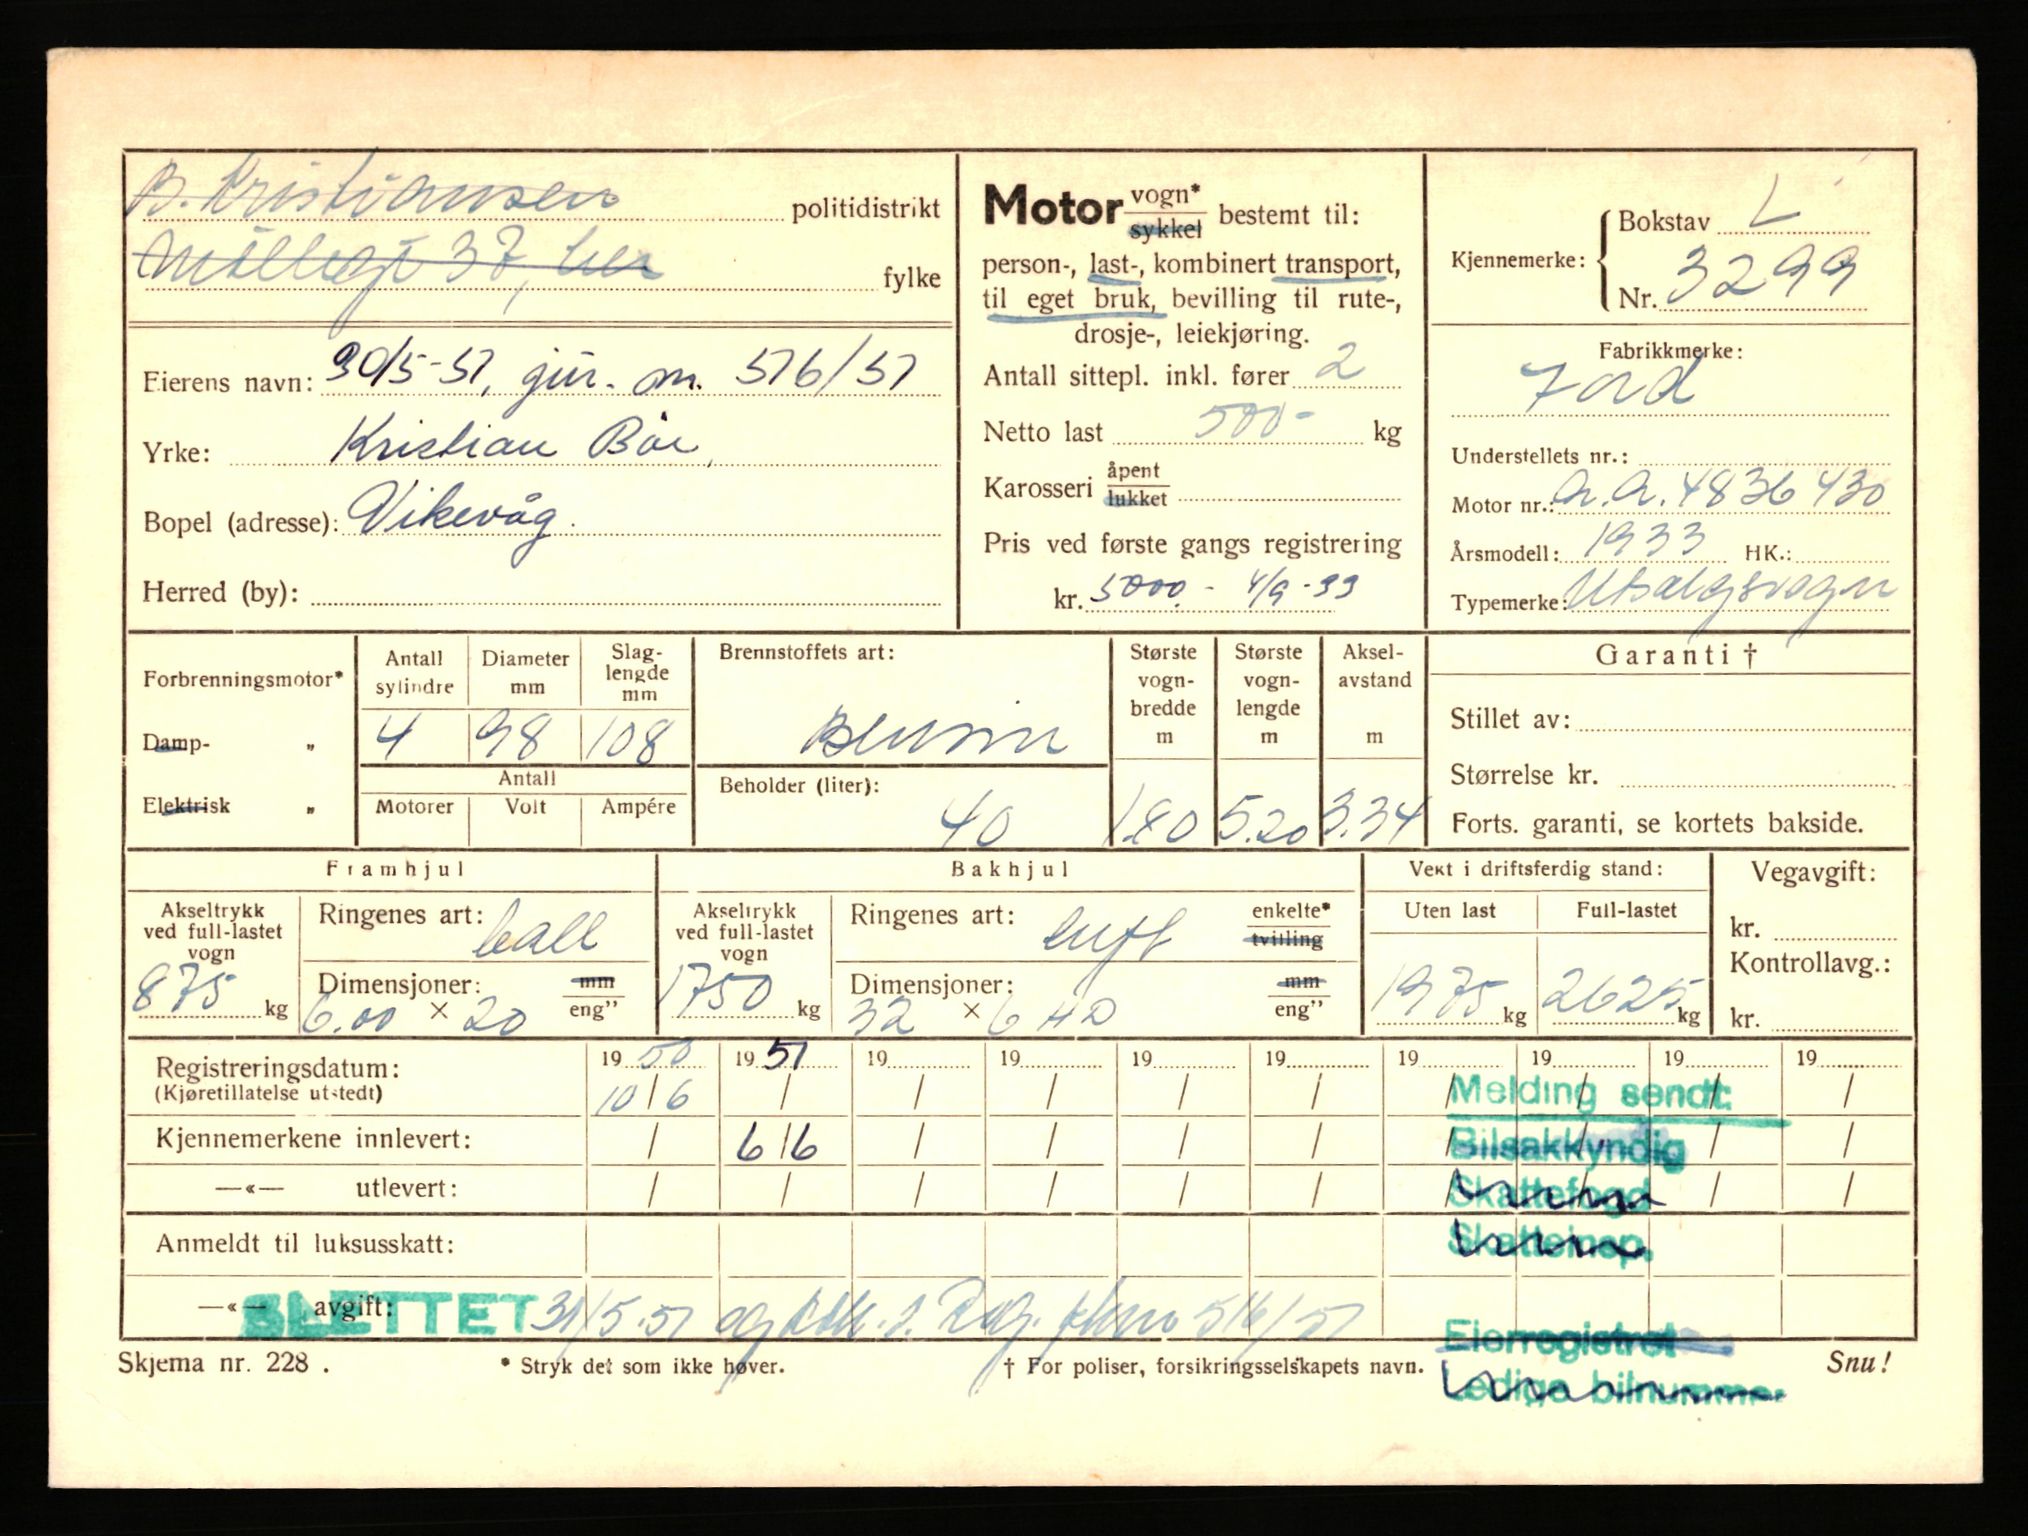 B. Kristiansen politidistrikt
Møllegt 37, her fylke
Eierens navn: 30/5-51, jür. m. 516/51
Yrke: Kristian Böe,
Bopel (adresse): Vikevåg.
Herred (by):
Motor vogn* / sykkel bestemt til:
person-, last-, kombinert transport,
til eget bruk, bevilling til rute-,
drosje-, leiekjøring.
Antall sittepl. inkl. fører 2
Netto last 500- kg
Karosseri åpent / lukket
Pris ved første gangs registrering
kr. 5000.- 4/9-33
Kjennemerke: Bokstav L
Nr. 3299
Fabrikkmerke:
Ford
Understellets nr.:
Motor nr.: A.A. 4836430
Årsmodell: 1933 HK.:
Typemerke: Utsalgsvogn
Forbrenningsmotor*
Damp- „
Elektrisk „
Antall sylindre Diameter mm Slaglengde mm
4 98 108
Antall
Motorer Volt Ampére
Brennstoffets art:
Bensin
Beholder (liter):
40
Største vogn-bredde m Største vogn-lengde m Aksel-avstand m
1.80 5.20 3.34
Garanti †
Stillet av:
Størrelse kr.
Forts. garanti, se kortets bakside.
Framhjul
Akseltrykk ved full-lastet vogn
875 kg
Ringenes art: ball
Dimensjoner: mm / eng”
6.00 × 20
Bakhjul
Akseltrykk ved full-lastet vogn
1750 kg
Ringenes art: luft enkelte* / tvilling
Dimensjoner: mm / eng”
32 × 6 HD
Vekt i driftsferdig stand:
Uten last Full-lastet
1975 kg 2625 kg
Vegavgift:
kr.
Kontrollavg.:
kr.
Registreringsdatum: 19 50 19 51 19 19 19 19 19 19 19 19
(Kjøretillatelse utstedt) 10/6 / / / / / / / / /
Kjennemerkene innlevert: / 6/6 / / / / / / / /
—«— utlevert: / / / / / / / / / /
Anmeldt til luksusskatt:
—«— avgift:
SLETTET 31/5.51
516/51
Melding sendt:
Bilsakkyndig
Skattefogd
Skatteinsp.
Eierregistret
Ledige bilnummer
Skjema nr. 228 . * Stryk det som ikke høver. † For poliser, forsikringsselskapets navn. Snu!